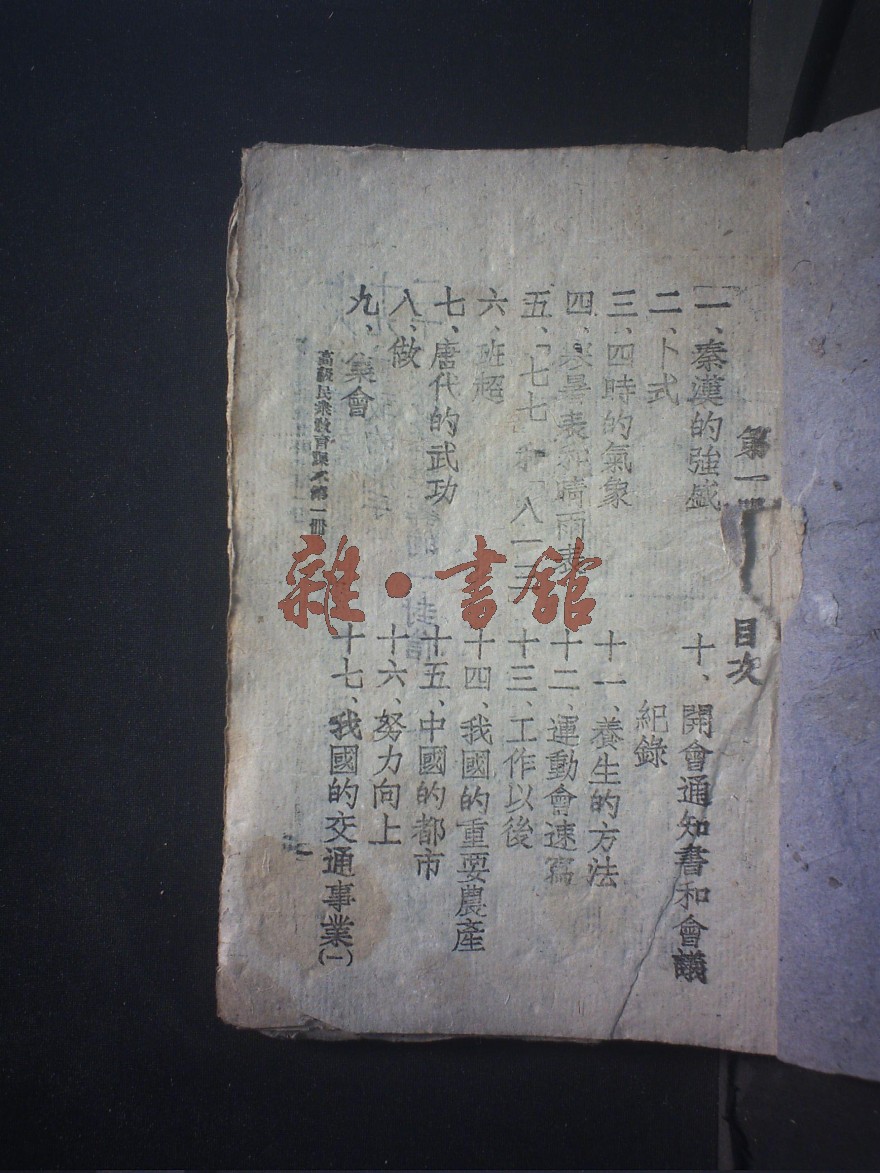 第一 目次
一、秦漢的強盛
二、卜式
三、四時的氣象
四、寒暑表和晴雨表
五、「七七」和「八一三
六、班超
七、唐代的武功
八、做
九、集會
十、開會通知書和會議
紀錄
十一、養生的方法
十二、運動會速寫
十三、工作以後
十四、我國的重要農產
十五、中國的都市
十六、努力向上
十七、我國的交通事業(一)
高級民眾教育課本第一冊
雜·書館